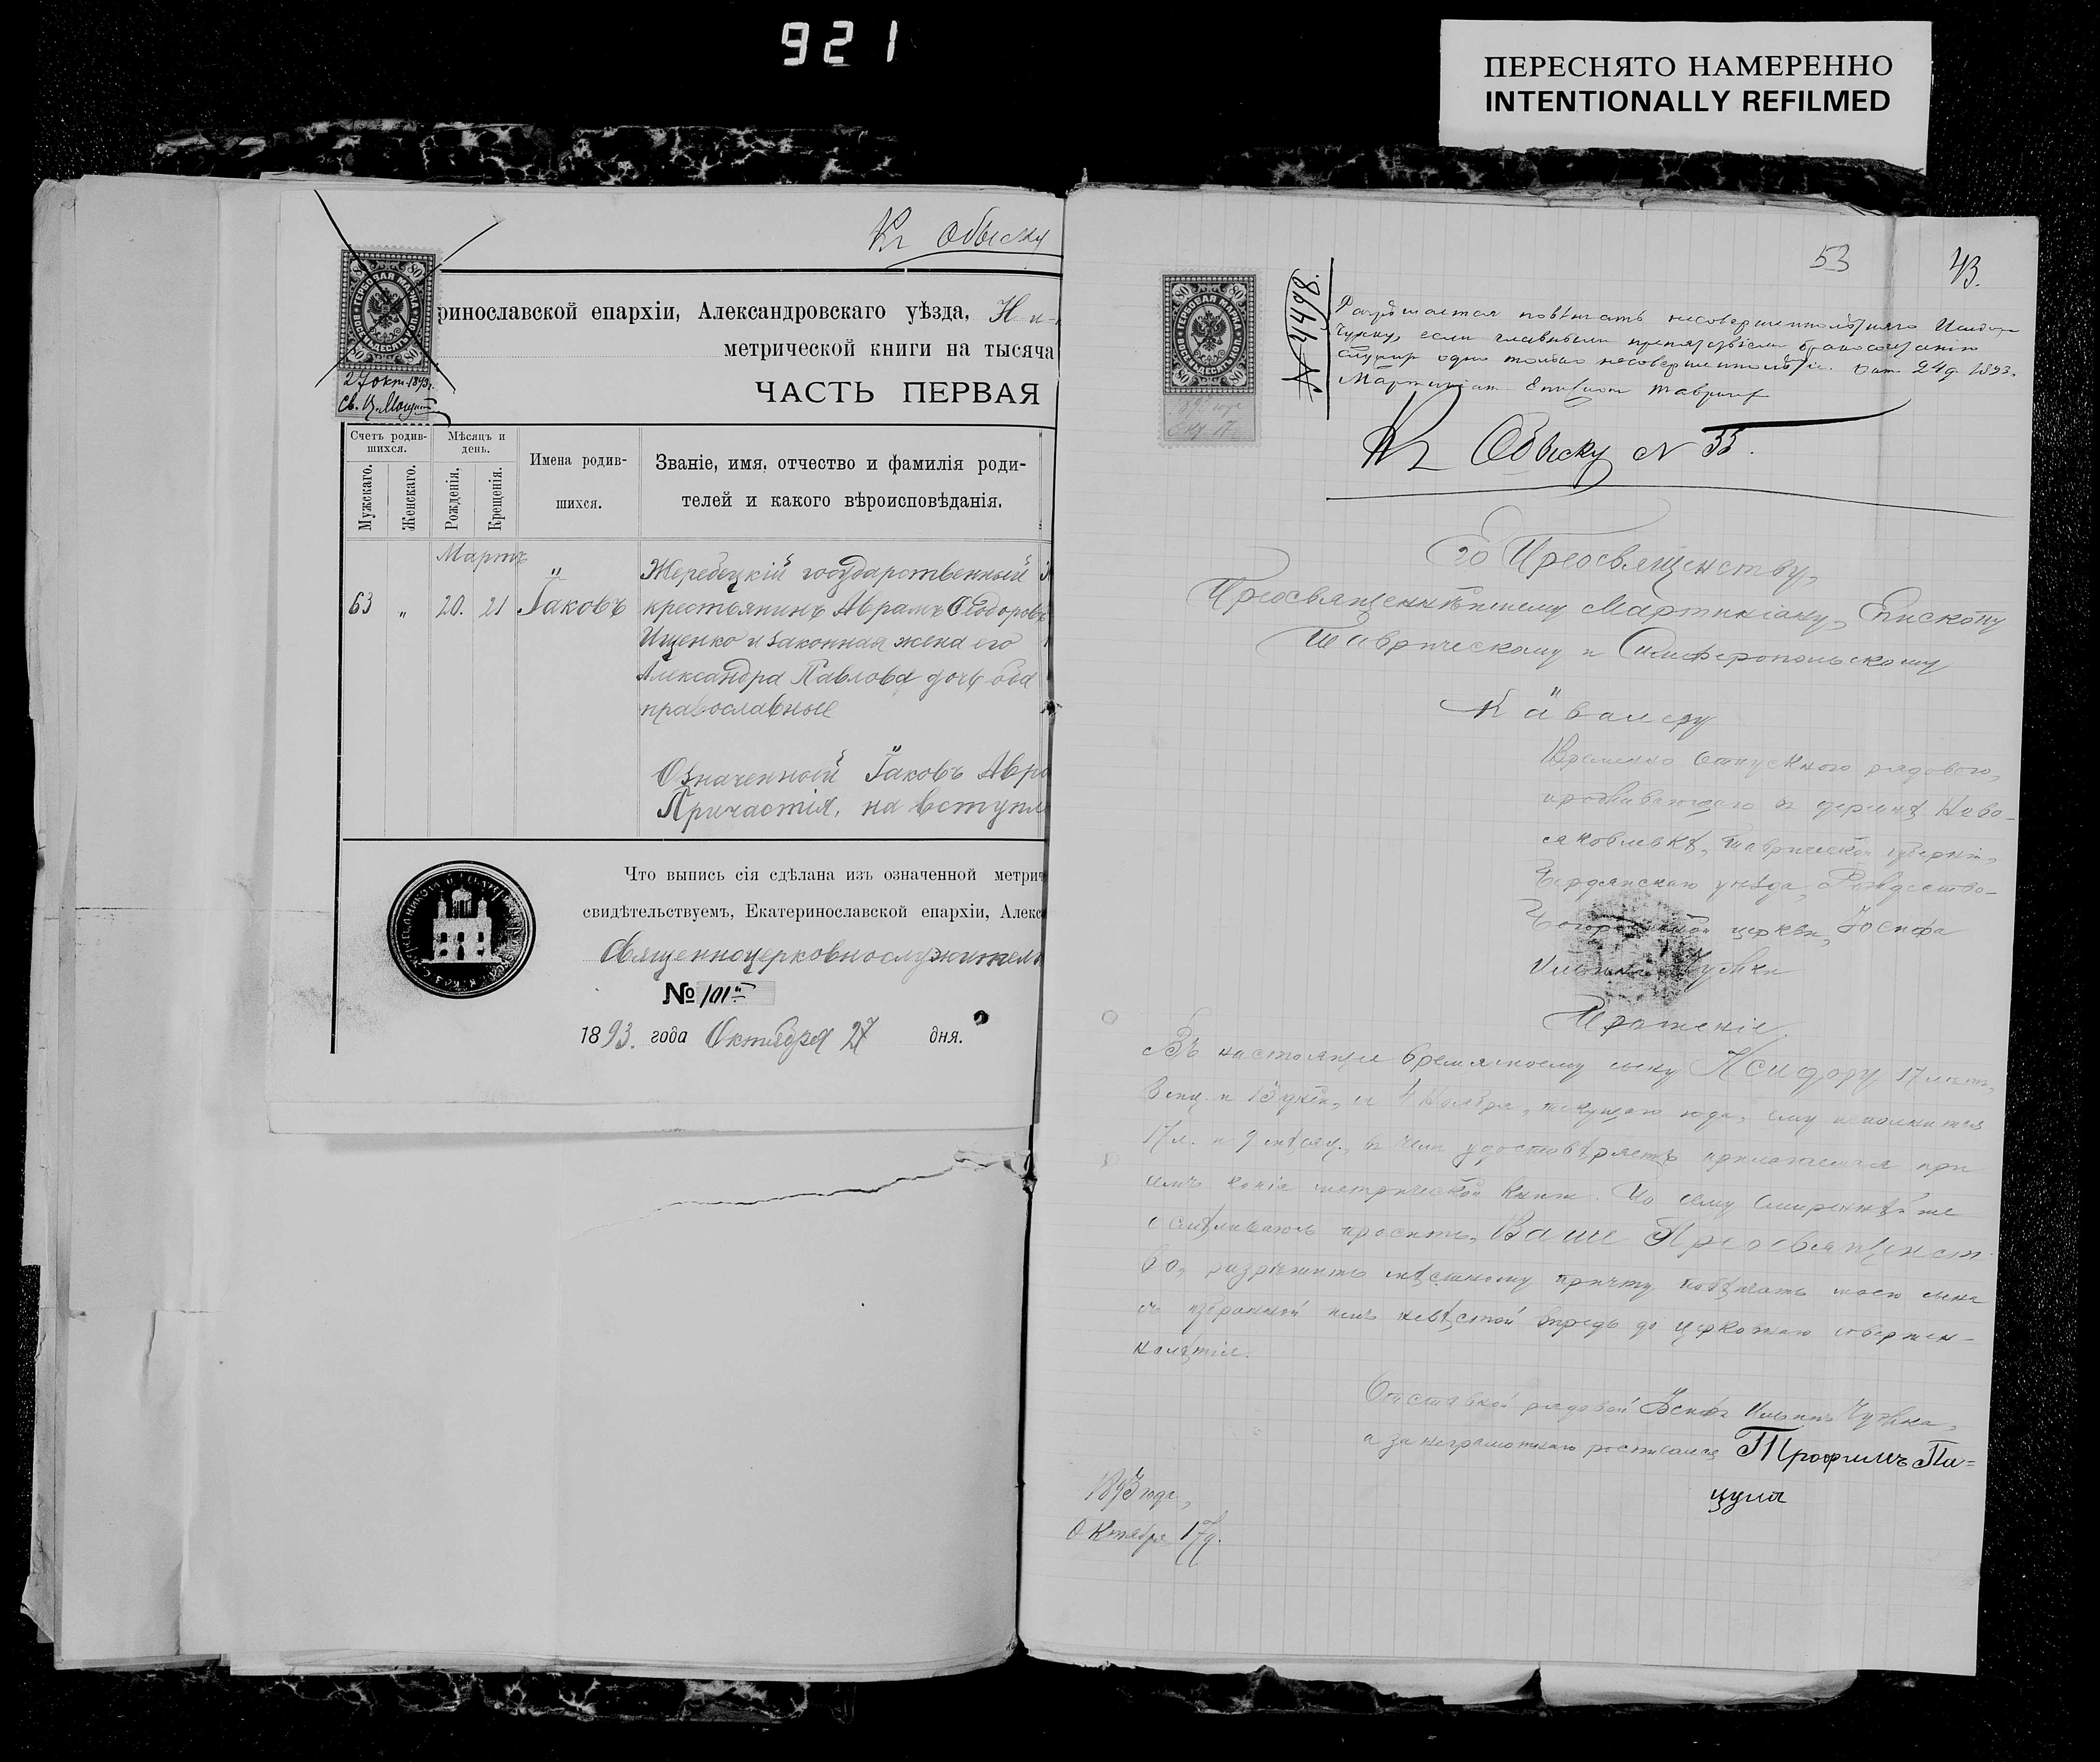 921
ПЕРЕСНЯТО НАМЕРЕННО
INTENTIONALLY REFILMED
Къ Обыску
80 80
ГЕРБОВАЯ МАРКА
ВОСЕМЬДЕСЯТЪ КОП.
80 80
27 окт. 1893 г.
Св. Н.
ринославской епархіи, Александровскаго уѣзда,
метрической книги на тысяча
ЧАСТЬ ПЕРВАЯ
Счетъ родив-
шихся.
Мужскаго.
Женскаго.
Мѣсяцъ и
день.
Рожденія.
Крещенія.
Имена родив-
шихся.
Званіе, имя, отчество и фамилія роди-
телей и какого вѣроисповѣданія.
Мартъ
63 " 20. 21 Іаковъ
Жеребецкій государственный
крестьянинъ Аврамъ Ѳеодоровъ
Ищенко и законная жена его
Александра Павлова дочь оба
православные
Означенный Іаковъ Авра
Причастія, на вступле
Что выпись сія сдѣлана изъ означенной метрич
свидѣтельствуемъ, Екатеринославской епархіи, Алекс
Священноцерковнослужители
№ 101й
1893. года Октября 27 дня.
53
43.
80 80
ГЕРБОВАЯ МАРКА
ВОСЕМЬДЕСЯТЪ КОП.
80 80
1893 года
Окт. 17
№ 4498.
Разрѣшается повѣнчать несовершеннолѣтняго
если главнымъ препятствіемъ бракосочетанію
служитъ одно только несовершеннолѣтіе. Окт. 24 д. 1893.
Мартиніанъ Епископъ Тавричес
Къ Обыску № 33.
Его Преосвященству,
Преосвященнѣйшему Мартиніану, Епископу
Таврическому и Симферопольскому
и Кавалеру
Временно отпускного рядового,
проживающаго въ деревнѣ Ново-
яковлевкѣ, Таврической губерніи,
Бердянскаго уѣзда, Рождество-
Богородичной церкви, Іосифа
Ильина
Прошеніе.
Въ настоящее время моему сыну Исидору 17 лѣтъ,
8 мц. и 13 дней, а 4 Ноября, текущаго года, ему исполнится
17 л. и 9 мѣсяц., въ чемъ удостовѣряетъ прилагаемая при
семъ копія метрической книги. По сему смиреннѣйше
осмѣливаюсь просить, Ваше Преосвященст-
во, разрѣшить мѣстному причту повѣнчать моего сына
съ избранной имъ невѣстой впредь до церковнаго совершен-
нолѣтія.
Отставной рядовой Іосифъ Ильинъ
а за неграмотнаго росписался Трофимъ Па=
цула
1893 года,
Октября 17 д.